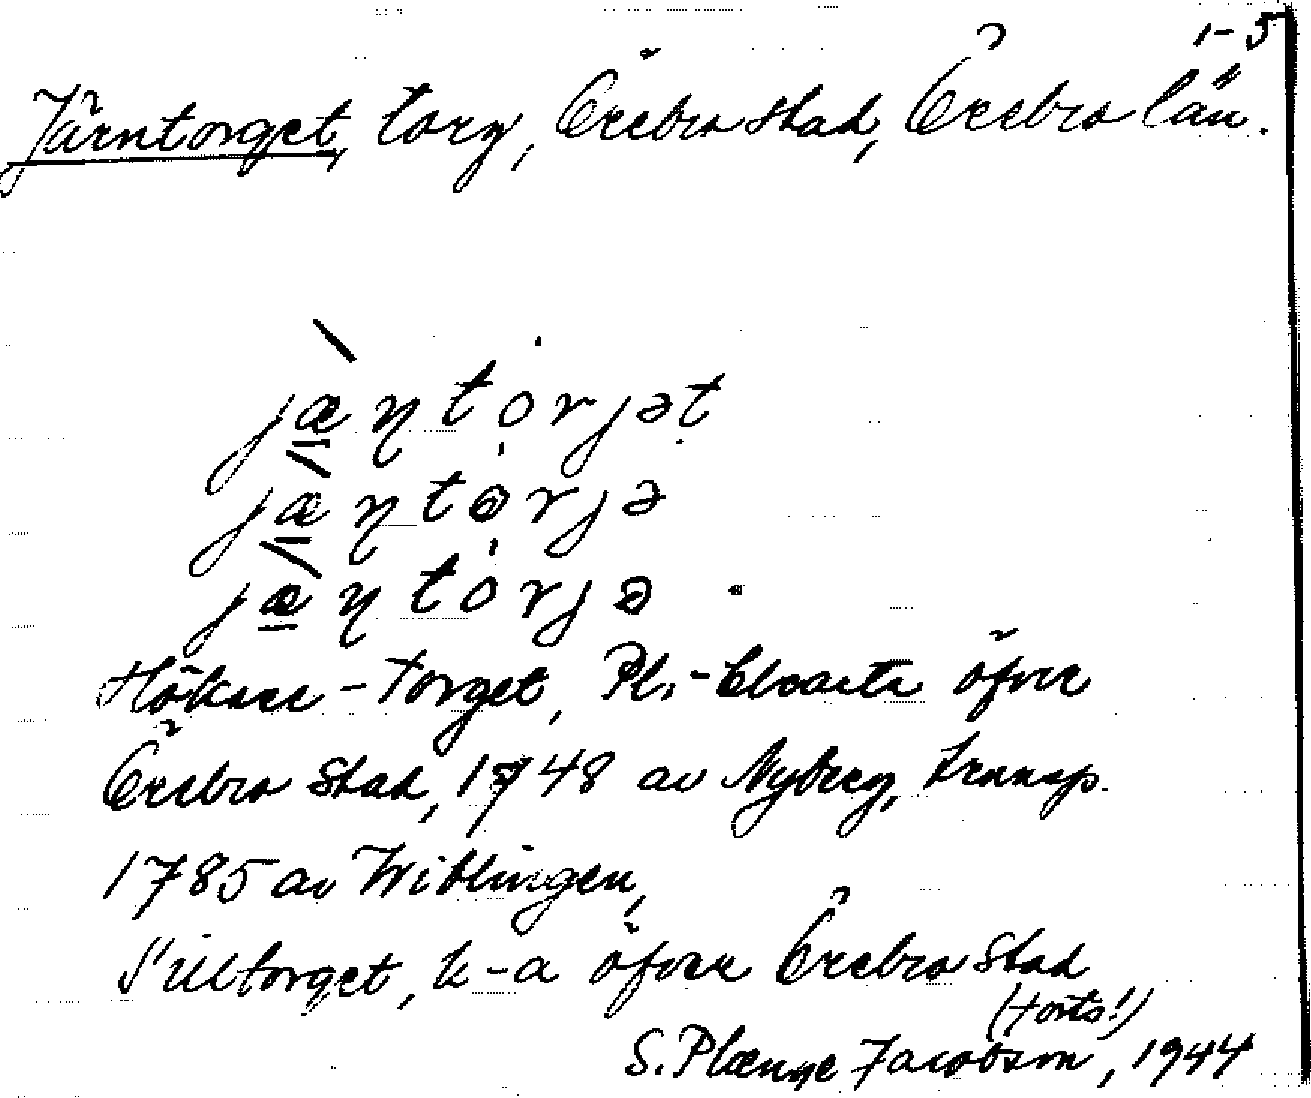 1-5
Järntorget, torg, Örebro stad, Örebro län.
jæɳtorjət
jæɳtorjə
jæɳtorjə
Hökare-Torget, Pl.-Charta öfver
Örebro Stad, 1748 av Nyberg, transp.
1785 av Wiblingen,
Silltorget, k-a öfver Örebro Stad
(forts!)
S. Plænge Jacobson, 1944